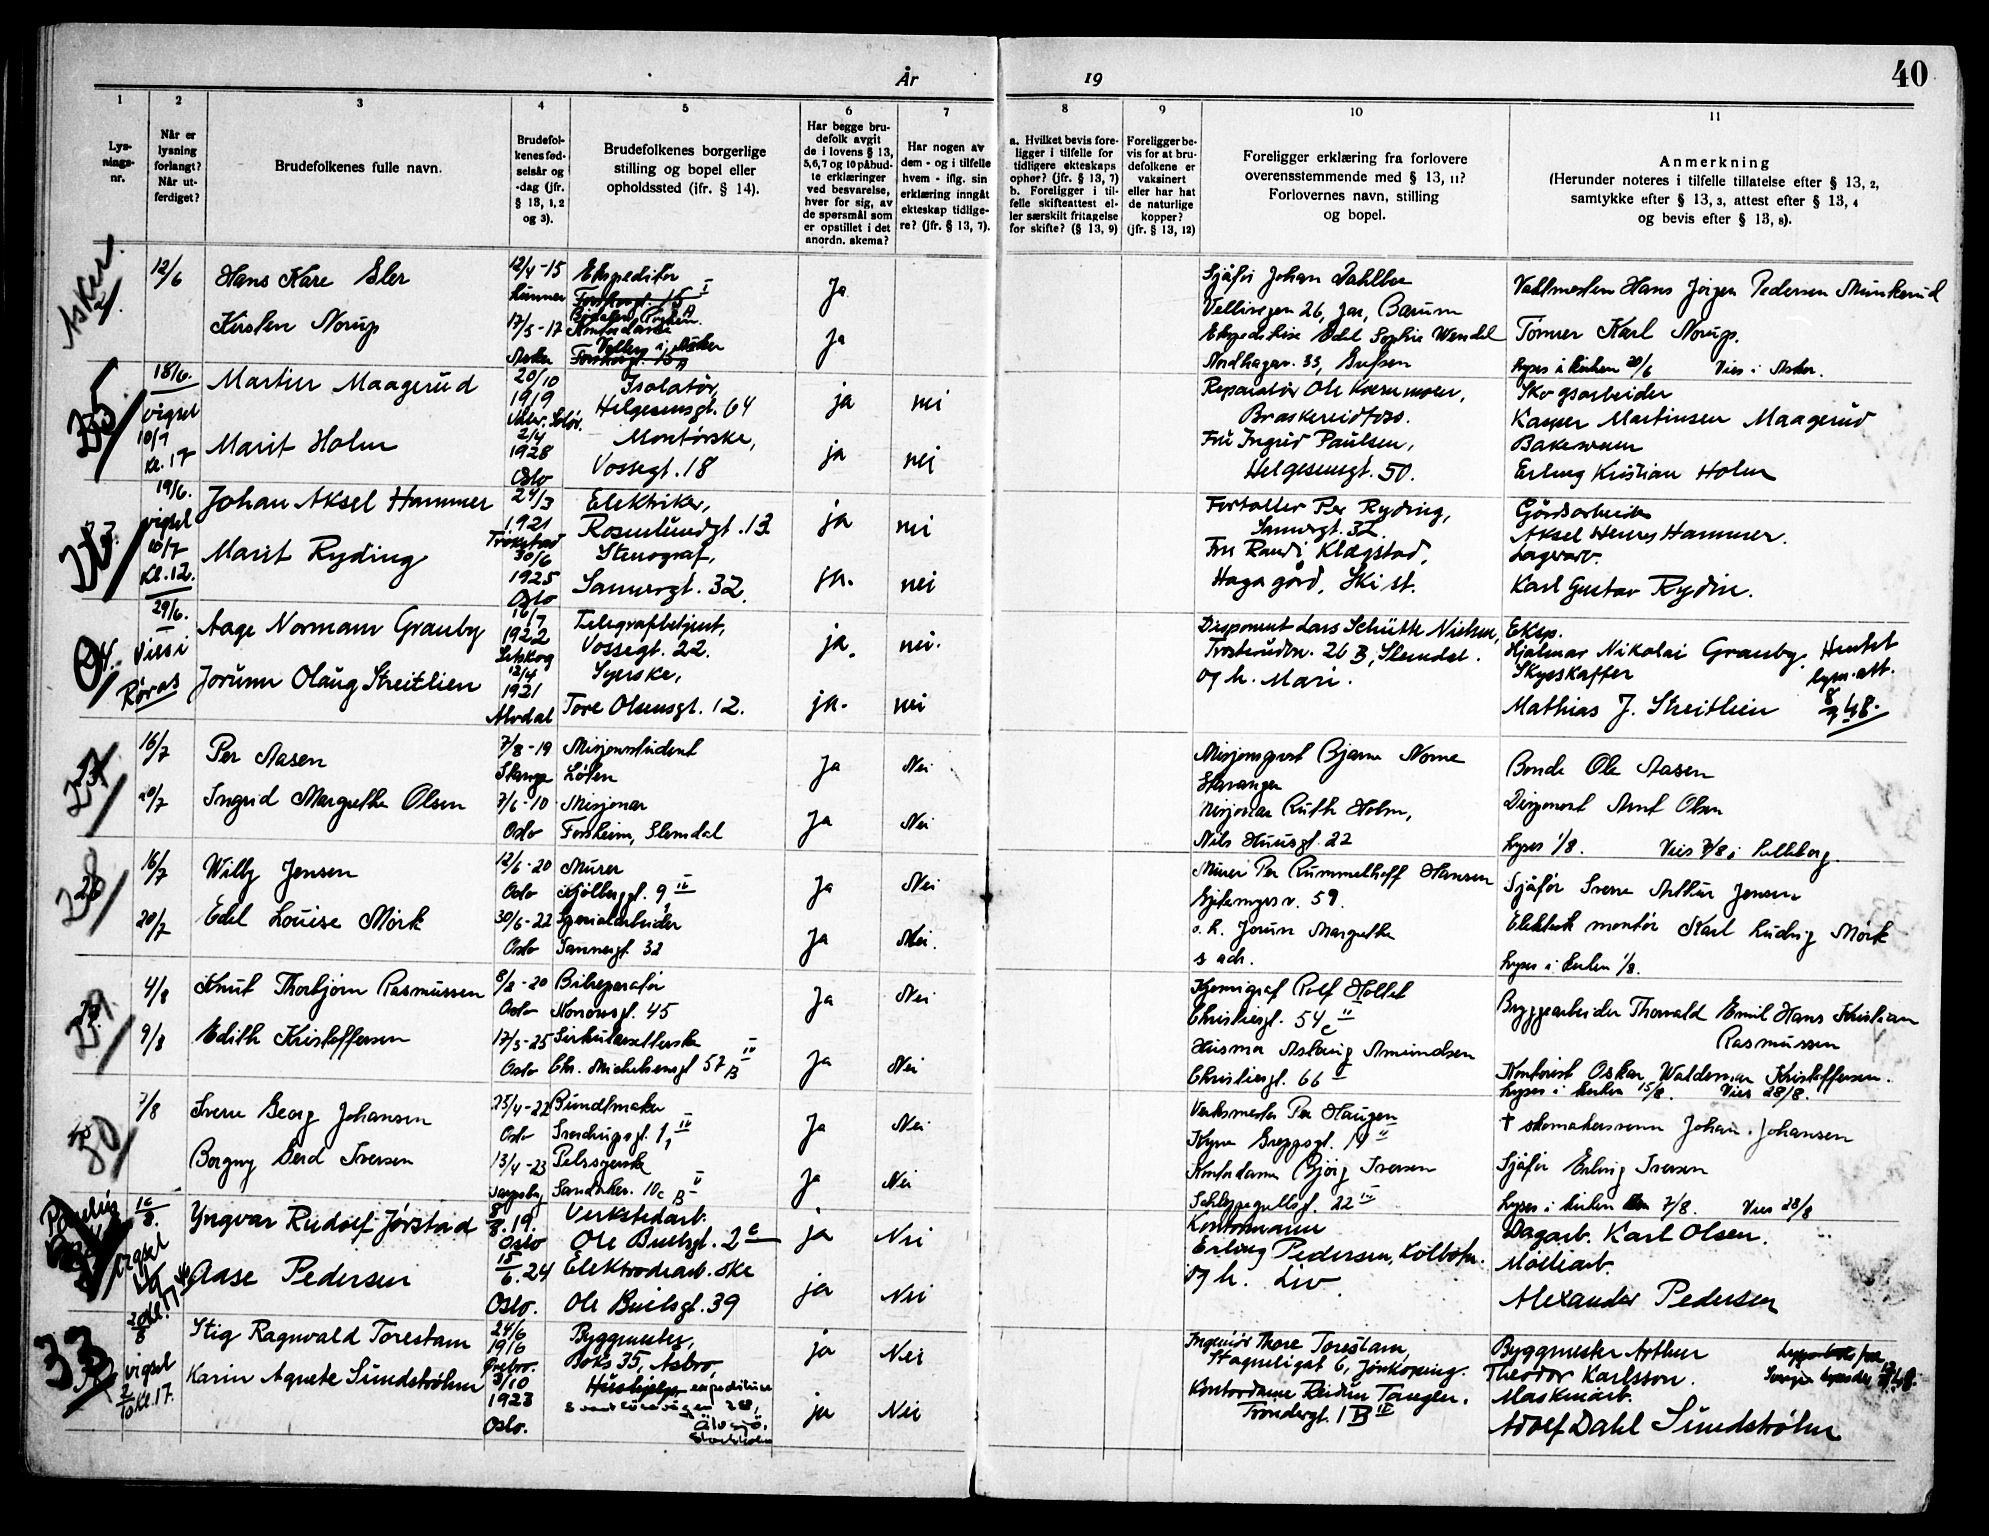 År 19
40
1 2 3 4 5 6 7 8 9 10 11
Lys-
nings-
nr.
Når er
lysning
forlangt?
Når ut-
ferdiget?
Brudefolkenes fulle navn.
Brudefol-
kenes fød-
selsår og
-dag (jfr.
§ 13, 1, 2
og 3).
Brudefolkenes borgerlige
stilling og bopel eller
opholdssted (ifr. § 14).
Har begge bru-
defolk avgit
de i lovens § 13,
5, 6, 7 og 10 påbud-
te erklæringer
ved besvarelse,
hver for sig, av
de spørsmål som
er opstillet i det
anordn. skema?
Har nogen av
dem - og i tilfelle
hvem - iflg. sin
erklæring inngåt
ekteskap tidlige-
re? (jfr. § 13, 7).
a. Hvilket bevis fore-
ligger i tilfelle for
tidligere ekteskaps
ophør? (jfr. § 13, 7)
b. Foreligger i til-
felle skifteattest el-
ler særskilt fritagelse
for skifte? (§ 13, 9)
Foreligger be-
vis for at bru-
defolkene er
vaksinert
eller har hat
de naturlige
kopper?
(jfr. § 13, 12)
Foreligger erklæring fra forlovere
overensstemmende med § 13, 11?
Forlovernes navn, stilling
og bopel.
Anmerkning
(Herunder noteres i tilfelle tillatelse efter § 13, 2,
samtykke efter § 13, 3, attest efter § 13, 4
og bevis efter § 13, 8).
Asker.
12/6 Hans Kåre Eler 12/4-15 Ekspeditør Ja
Kirsten Norup 17/5-17 Kontordame Ja
Asker
Sjåfør Johan Dahlbo
26, Jar, Bærum
Edel Sophie Wendel
33, Grefsen
Hans Jørgen Pedersen
Karl Norup.
Lyses i kirken 20/6 Vies i Asker.
35
18/6. Martin Maagerud 20/10 1919 Isolatør, Helgesensgt. 64 ja nei
vigsel 10/7 kl. 17
Marit Holm 2/4 1928 Oslo Montørske, Vossegt. 18 ja nei
Reparatør Ole
Braskereidfoss.
Fru Ingrid Paulsen,
Helgesensgt. 50.
Skogsarbeider
Kasper Martinsen Maagerud
Erling Kristian Holm
19/6. Johan Aksel Hammer 24/3 1921 Trøkstad Elektriker, Rosenlundgt. 13. ja nei
vigsel 10/7 kl. 12.
Marit Ryding 30/6 1925 Oslo Stenograf, Sannergt. 32. ja. nei
Per Ryding,
Sannergt. 32.
Fru Randi Klægstad,
Haga gård, Ski st.
Gårdsarbeider
Aksel Henry Hammer.
Lagerarb.
Karl Gustav Rydin.
29/6. Aage Normann Granby 16/7 1922 Setskog Telegrafbetjent, Vossegt. 22. ja. nei.
Vies i Røros
Jorunn Olaug Streitlien 12/4 1921 Alvdal Syerske, Tore Olsensgt. 12. ja. nei
Disponent Lars Schütte Nielsen,
26 B, Slemdal.
og h. Mari.
Eksp.
Hjalmar Nikolai Granby.
Skysskaffer
Mathias J. Streitlien
Hentet lysn. att. 48.
16/7 Per Aasen 7/8-19 Stange Misjonsstudent Løten Ja Nei
20/7 Ingrid Margrethe Olsen 7/6-10 Oslo Misjonær Forsheim, Slemdal Ja Nei
Bjarne Nome
Stavanger
Misjonær Ruth Holm,
Nils Huusgt. 22
Bonde Ole Aasen
Disponent Arnt Olsen
Lyses 1/8. Vies 7/8 i
28
16/7 Willy Jensen 12/6-20 Oslo Murer Kjølberggt. 9, IV Ja Nei
20/7 Edel Louise Mørk 30/6-22 Oslo Spesialarbeider Sannergt. 32 Ja Nei.
Murer Per Rummelhoff Hansen
59.
o. h. Jorun Margrethe
s adr.
Sjåfør Sverre Arthur Jensen
Elektrisk montør Karl Ludvig Mørk
Lyses i kirken 1/8.
29.
4/8 Knut Thorbjørn Rasmussen 8/8-20 Oslo Bilreparatør 45 Ja Nei
9/8 Edith Kristoffersen 17/5-25 Oslo Chr. Michelsensgt 57 B IV Ja Nei
Kjemigraf Rolf Holtet
Christiesgt. 54 c II
Husmor Aslaug Amundsen
Christiesgt. 66
Bryggearbeider Thorvald Emil Hans Kristian
Rasmussen
Kontorist Oskar Waldemar Kristoffersen.
Lyses i kirken 15/8. Vies 28/8.
30
7/8 Sverre Georg Johansen 23/4-22 Oslo Buntmaker 1, IV Ja Nei
Borgny Gerd Iversen 13/4-23 Pelssyerske Sandakerv. 10c B II Ja Nei
Verksmester Per Haugen
Greppsgt. 14 II
Kontordame Bjørg Iversen
Schleppegrellsgt. 22 III
† skomakersvenn Johan Johansen
Sjåfør Erling Iversen
Lyses i kirken 7/8. Vies 28/8
10/8. Yngvar Rudolf Jørstad 8/8.19. Oslo Verkstedarb. Ole Bullsgt. 2c ja Nei
vigsel
Aase Pedersen 15/6.24 Oslo. Elektrodearb.ske Ole Buelsgt. 39 ja Nei
Kontormann
Erling Pedersen, Kolbotn.
og h. Liv.
Dagarb. Karl Olsen.
Møllearb.
Alexander Pedersen
33
20/8 Stig Ragnvald Torestam 24/6 1916 Örebro. Byggmester, Boks 35, Åsbro, ja Nei
vigsel 2/10 kl. 17.
Karin Agnete Sundstrøhm 3/10 1923 Oslo. ekspeditrise 28, Älvsjö, Stockholm ja Nei
Ingeniør Thore Torestam,
6, Jönköping.
Kontordame Reidun Tangen.
Trondergt. 1 B IV
Byggmester Arthur
Theodor Karlsson.
Maskinarb.
Adolf Dahl Sundstrøhm